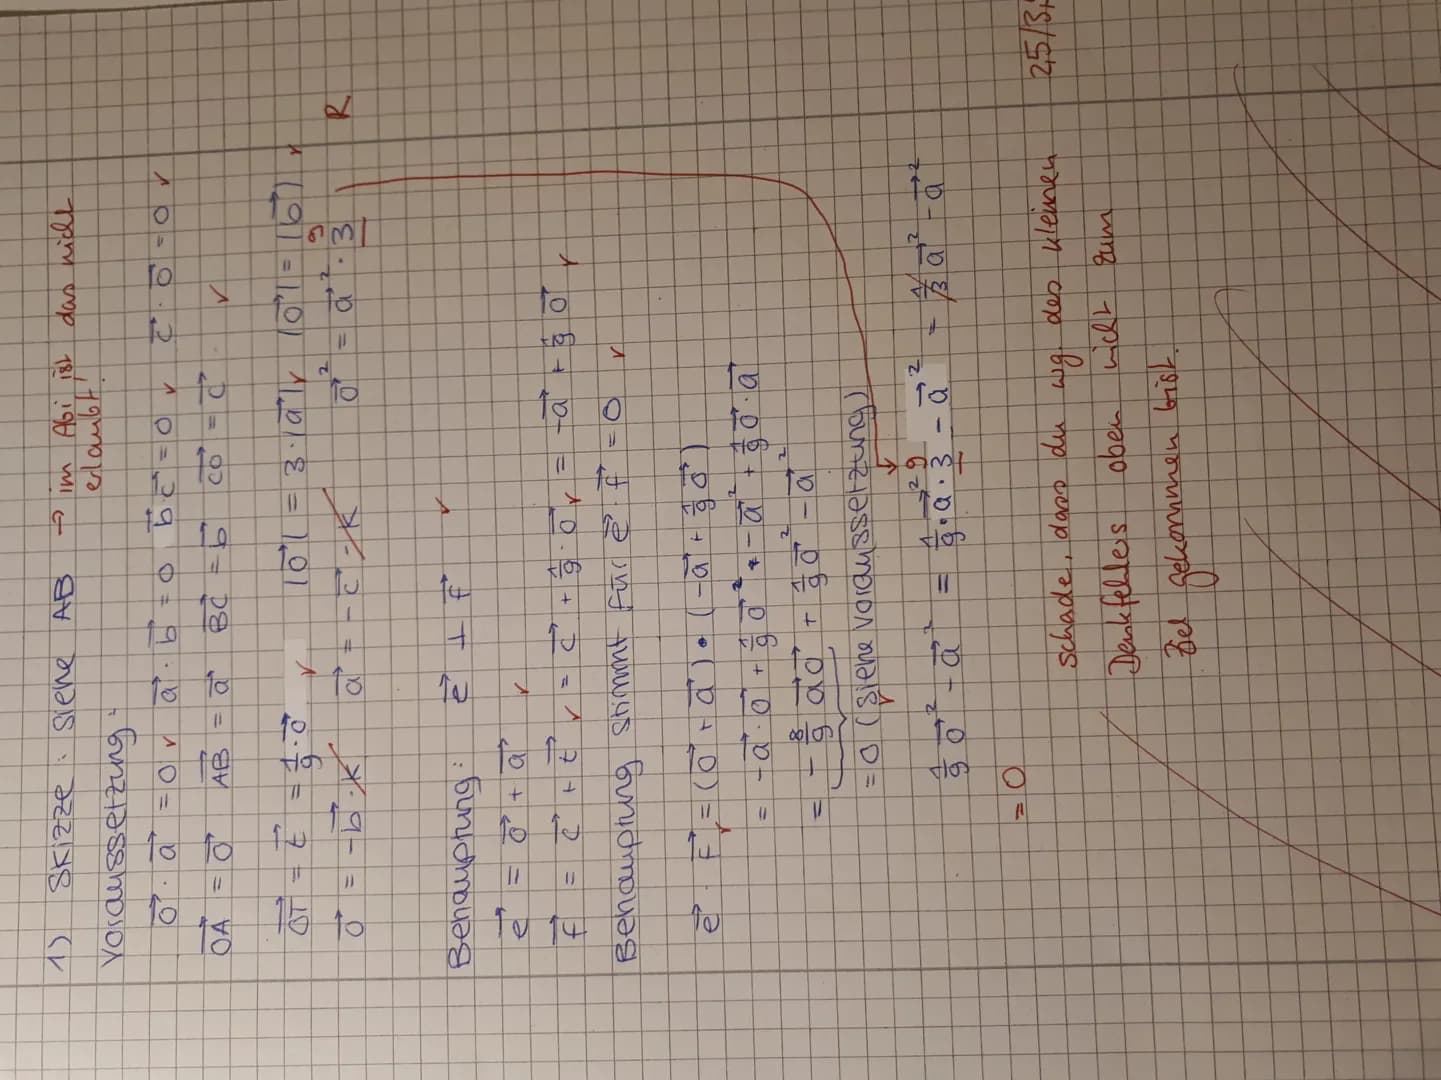 1) Skizze: siehe AB → im Abi ist das nicht erlaubt!
Voraussetzung:
o⃗ · a⃗ = 0 ✓ a⃗ · b⃗ = 0 b⃗·c⃗ = 0 ✓ c⃗ · o⃗ = 0 ✓
OA⃗ = o⃗ AB⃗ = a⃗ BC⃗ = b⃗ CO⃗ = c⃗ ✓
OT⃗ = t⃗ = 1/9 · o⃗ ✓ |o⃗| = 3 · |a⃗| ✓ |o⃗| = |b⃗| ✓
o⃗ = -b⃗ · K a⃗ = -c⃗ · K o⃗² = a⃗² · 3 9 R
Behauptung: e⃗ ⊥ f⃗ ✓
e⃗ = o⃗ + a⃗ ✓
f⃗ = c⃗ + t⃗ ✓ = c⃗ + 1/9 · o⃗ ✓ = -a⃗ + 1/9 o⃗ ✓
Behauptung stimmt für e⃗ · f⃗ = 0 ✓
e⃗ · f⃗ ✓ = (o⃗ + a⃗) · (-a⃗ + 1/9 o⃗)
= -a⃗ · o⃗ + 1/9 o⃗² + -a⃗² + 1/9 o⃗ · a⃗
= - 8/9 a⃗o⃗ + 1/9 o⃗² - a⃗²
= 0 (siehe Voraussetzung) ✓
1/9 o⃗² - a⃗² = 1/9 · a⃗² · 3 9 - a⃗² = 1/3 a⃗² - a⃗²
= 0
Schade, dass du wg. des kleinen
Denkfehlers oben nicht zum
Ziel gekommen bist.